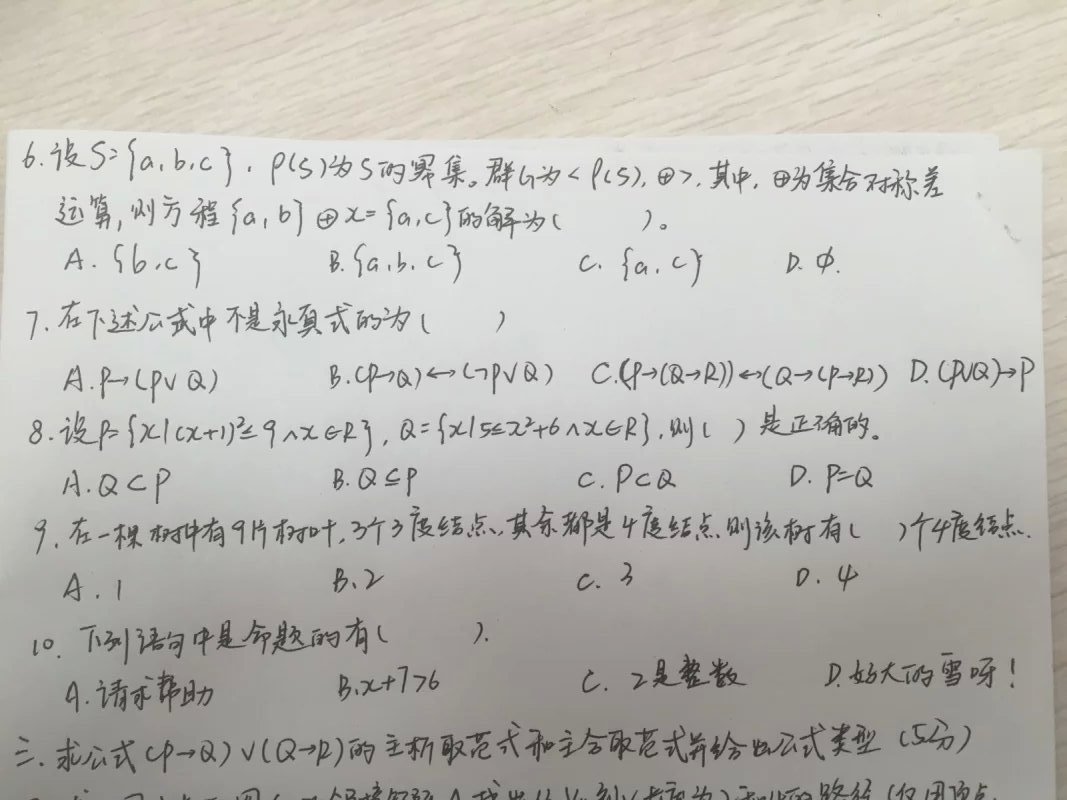 6.设S={a,b,c},P(S)为S的幂集。群G为<P(S),⊕>,其中,⊕为集合对称差
运算,则方程{a,b}⊕x={a,c}的解为( )。
A.{b,c} B.{a,b,c} C.{a,c} D.Φ.
7.在下述公式中不是永真式的为( )
A.P→(P∨Q) B.(P→Q)↔(¬P∨Q) C.(P→(Q→R))↔(Q→(P→R)) D.(P∨Q)→P
8.设P={x|(x+1)²≤9∧x∈R},Q={x|5≤x²+6∧x∈R},则( )是正确的。
A.Q⊂P B.Q⊆P C.P⊂Q D.P=Q
9.在一棵树中有9片树叶,3个3度结点,其余都是4度结点则该树有( )个4度结点.
A.1 B.2 C.3 D.4
10.下列语句中是命题的有( ).
A.请求帮助 B.x+7>6 C.2是整数 D.好大的雪呀!
三.求公式(P→Q)∨(Q→R)的主析取范式和主合取范式并给出公式类型(5分)